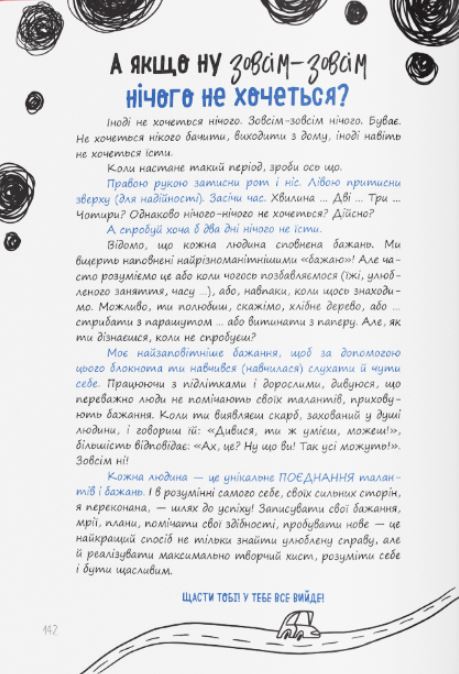 А ЯКЩО НУ зовсім-зовсім
НІЧОГО НЕ ХОЧЕТЬСЯ?
Іноді не хочеться нічого. Зовсім-зовсім нічого. Буває.
Не хочеться нікого бачити, виходити з дому, іноді навіть
не хочеться їсти.
Коли настане такий період, зроби ось що.
Правою рукою затисни рот і ніс. Лівою притисни
зверху (для надійності). Засічи час. Хвилина ... Дві ... Три ...
Чотири? Однаково нічого-нічого не хочеться? Дійсно?
А спробуй хоча б два дні нічого не їсти.
Відомо, що кожна людина сповнена бажань. Ми
вщерть наповнені найрізноманітнішими «бажаю»! Але ча-
сто розуміємо це або коли чогось позбавляємося (їжі, улюб-
леного заняття, часу ...), або, навпаки, коли щось знаходи-
мо. Можливо, ти полюбиш, скажімо, хлібне дерево, або ...
стрибати з парашутом ... або витинати з паперу. Але, як
ти дізнаєшся, коли не спробуєш?
Моє найзаповітніше бажання, щоб за допомогою
цього блокнота ти навчився (навчилася) слухати й чути
себе. Працюючи з підлітками і дорослими, дивуюся, що
переважно люди не помічають своїх талантів, прихову-
ють бажання. Коли ти виявляєш скарб, захований у душі
людини, і говориш їй: «Дивися, ти ж умієш, можеш!»,
більшість відповідає: «Ах, це? Ну що ви! Так усі можуть!».
Зовсім ні!
Кожна людина — це унікальне ПОЄДНАННЯ талан-
тів і бажань. І в розумінні самого себе, своїх сильних сторін,
я переконана, — шлях до успіху! Записувати свої бажання,
мрії, плани, помічати свої здібності, пробувати нове — це
найкращий спосіб не тільки знайти улюблену справу, але
й реалізувати максимально творчий хист, розуміти себе
і бути щасливим.
ЩАСТИ ТОБІ! У ТЕБЕ ВСЕ ВИЙДЕ!
142